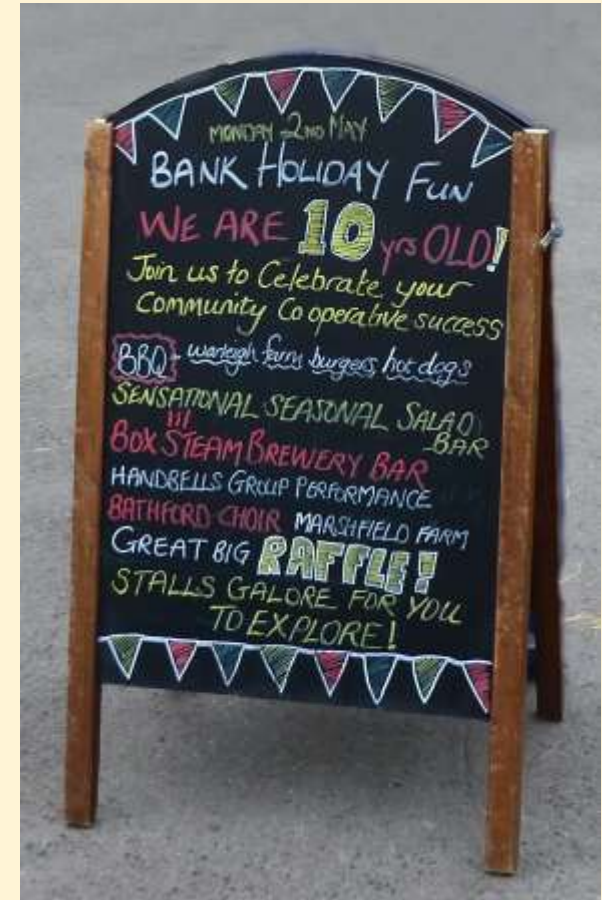 MONDAY 2ND MAY
BANK HOLIDAY FUN
WE ARE 10 yrs OLD!
Join us to Celebrate your
Community Co operative success
BBQ - warleigh farm burgers, hot dogs
SENSATIONAL SEASONAL SALAD
BAR
BOX STEAM BREWERY BAR
HANDBELLS GROUP PERFORMANCE
BATHFORD CHOIR MARSHFIELD FARM
GREAT BIG RAFFLE!
STALLS GALORE FOR YOU
TO EXPLORE!